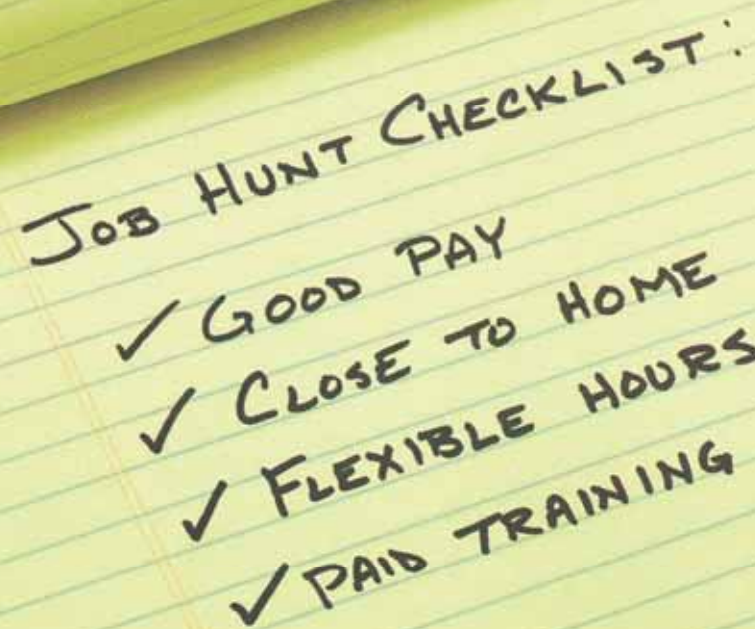 JOB HUNT CHECKLIST:
✓ GOOD PAY
✓ CLOSE TO HOME
✓ FLEXIBLE HOURS
✓ PAID TRAINING